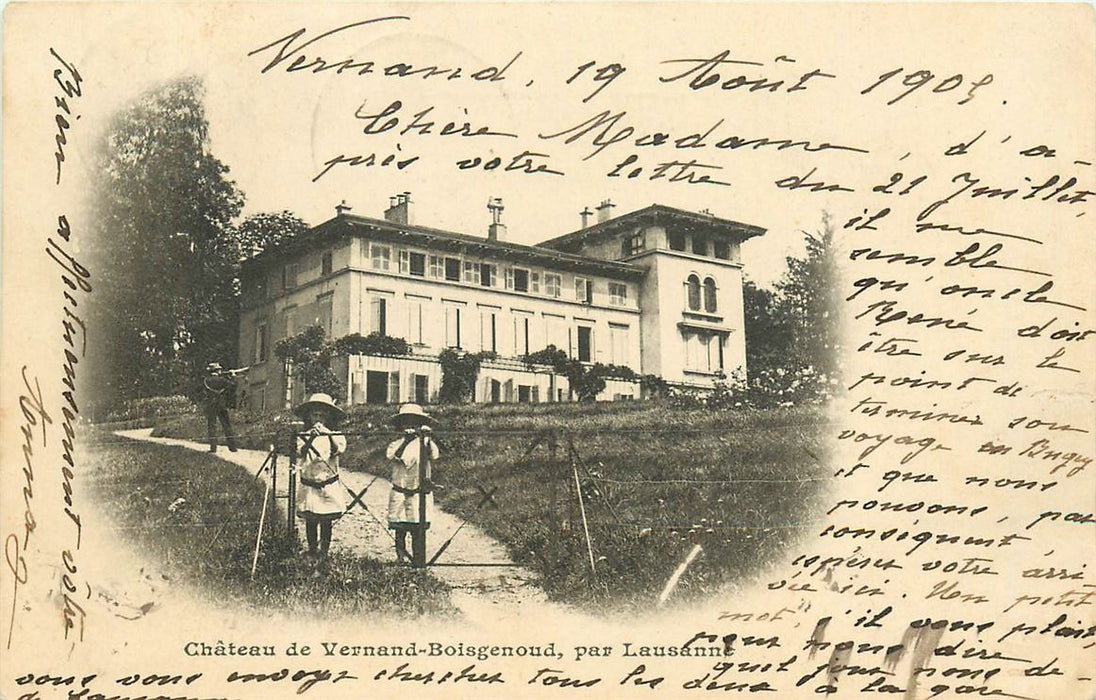 Vernand, 19 Août 1905.
Chère Madame, d'a-
près votre lettre du 21 Juillet,
il me
semble
qu'oncle
René doit
être sur le
point de
terminer son
voyage en
et que nous
pouvons, par
conséquent
espérer votre arri-
vée ici. Un petit
mot, s'il vous plait,
pour nous dire
quel jour nous de-
vons vous envoyer chercher tous les deux à la gare
de Lausanne
Bien affectueusement vôtre
Château de Vernand-Boisgenoud, par Lausanne